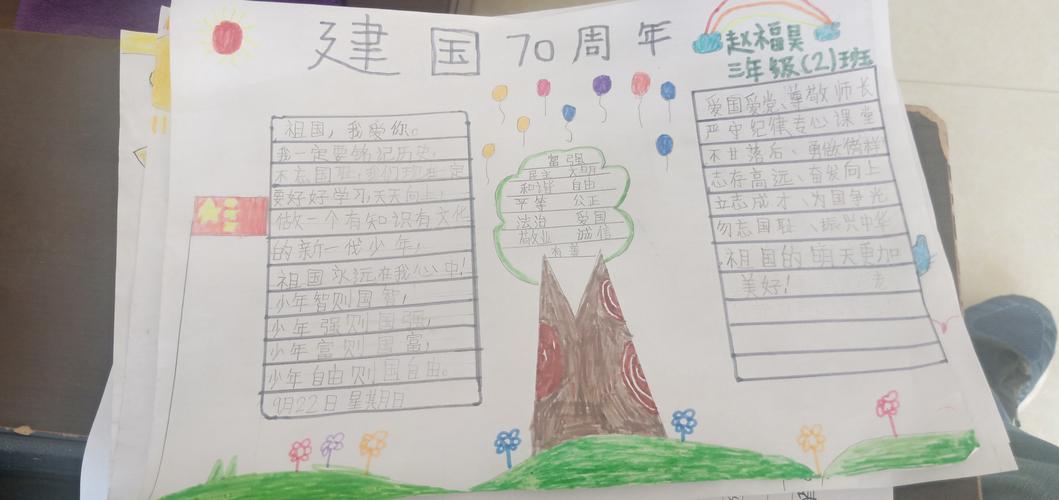 建国70周年
赵福昊
三年级(2)班
祖国，我爱你。
我一定要铭记历史，
不忘国耻，我们现在一定
要好好学习，天天向上，
做一个有知识有文化
的新一代少年，
祖国永远在我心中！
少年智则国智，
少年强则国强，
少年富则国富，
少年自由则国自由。
9月22日 星期日
富强
民主 文明
和谐 自由
平等 公正
法治 爱国
敬业 诚信
友善
爱国爱党、尊敬师长
严守纪律、专心课堂
不甘落后、勇做榜样
志存高远、奋发向上
立志成才、为国争光
勿忘国耻、振兴中华
祖国的明天更加
美好！